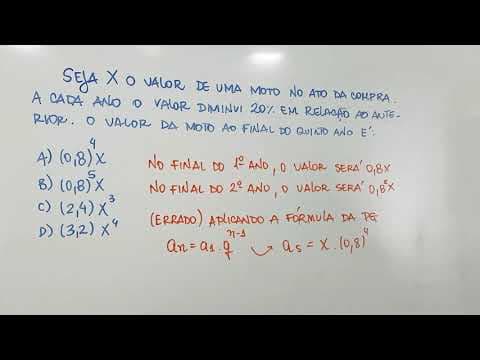 SEJA X O VALOR DE UMA MOTO NO ATO DA COMPRA.
A CADA ANO O VALOR DIMINUI 20% EM RELAÇÃO AO ANTE-
RIOR. O VALOR DA MOTO AO FINAL DO QUINTO ANO É:
A) (0,8)⁴X
B) (0,8)⁵X
C) (2,4) X³
D) (3,2) X⁴
NO FINAL DO 1º ANO, O VALOR SERÁ 0,8X
NO FINAL DO 2º ANO, O VALOR SERÁ 0,8²X
(ERRADO) APLICANDO A FÓRMULA DA PG
aₙ = a₁ . qⁿ⁻¹ → a₅ = X . (0,8)⁴